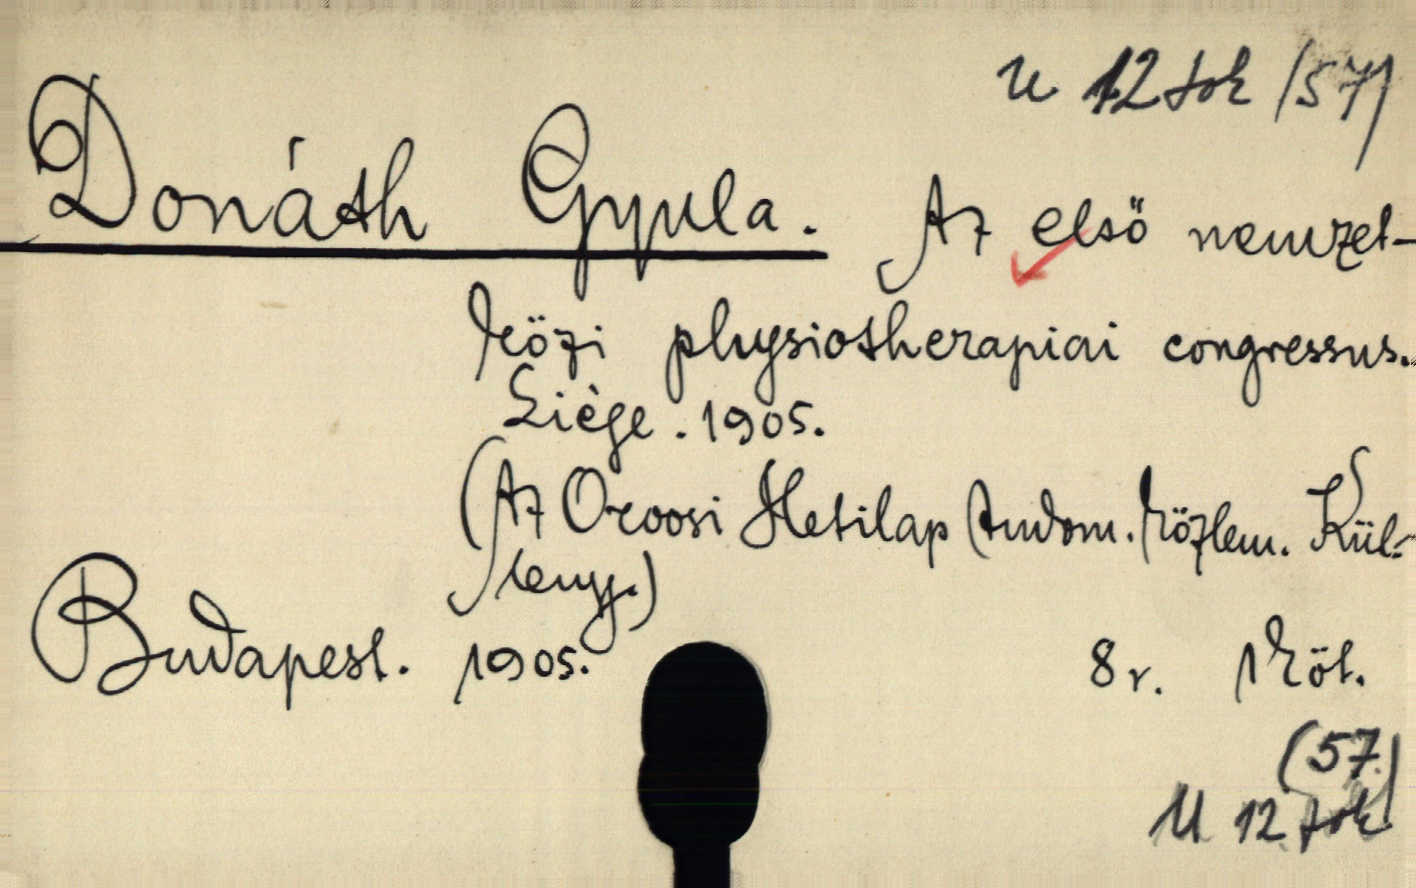 U 12 tok /57/
Donáth Gyula. Az első nemzet-
közi physiotherapiai congressus.
Liège. 1905.
(Az Orvosi Hetilap tudom. közlem. Kül-
leny.)
Budapest. 1905. 8 r. 1 köt.
(57.)
U 12 tok